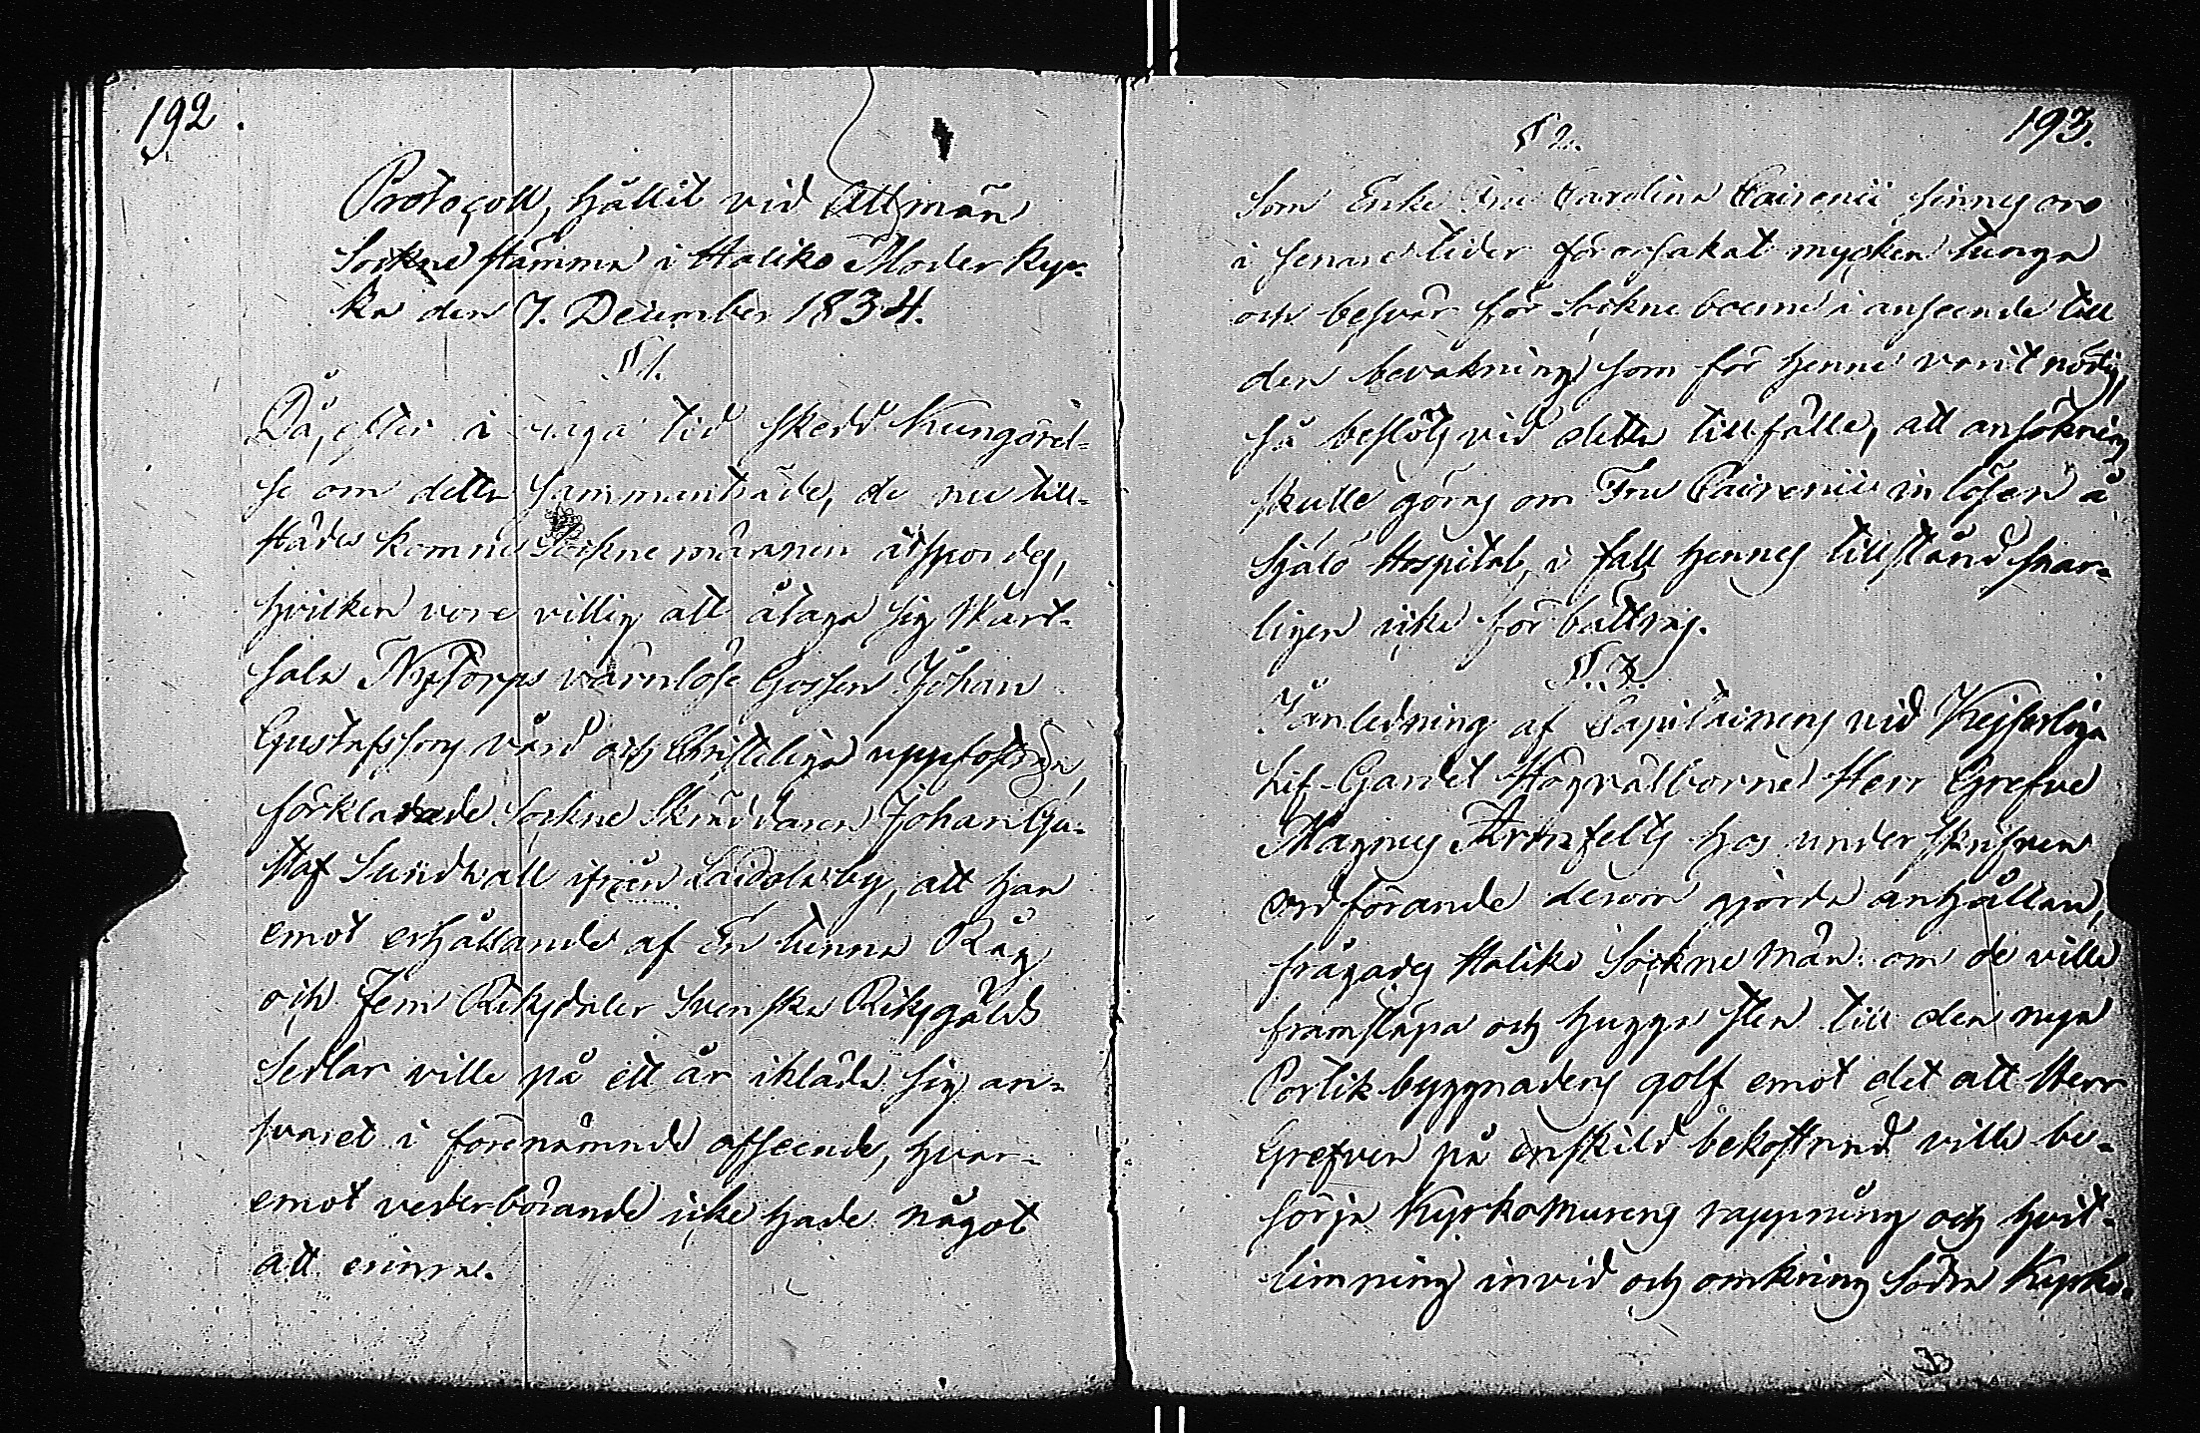 192.
Protocoll, hållit vid Allmän
Sockne stämma i Haliko Moder kyr-
ka den 7. December 1834.
§ 1.
Då, efter i laga tid skedd Kungörel-
se om detta sammanträde, de nu till-
städes komne Sockne männen åtspordes,
hvilken vore villig att åtaga sig Wart-
sala Nytorps värnlöse Gossen Johan
Gustafssons vård och Christeliga uppfostran,
förklarade Sockne Skräddaren Johan Gu-
staf Sundwall ifrån Laidola by, att han
emot erhållande af En tunna Råg
och Fem Riksdaler Svenska Riksgälds
Sedlar ville på ett år ikläda sig an-
svaret i förenämnde afseende, hvar-
emot vederbörande icke hade något
att erinra.
193.
§ 2.
Som Enke Fru Carolina Cairenii sinnes oro
i senare tider förorsakat mycken tunga
och besvär för Sockne boerne i anseende till
den bevakning som för henne varit nödig,
så beslöts vid detta tillfälle, att ansökning
skulle göras om Fru Cairenii in lösen å
Själö Hospital, i fall hennes tillstånd snar-
ligen icke för bättras.
§. 3.
I anledning af Capitainens vid Kejserliga
Lif-Gardet Högvälborne Herr Grefve
Magnus Armfelts hos underskrifven
ordförande derom gjorda anhållan,
frågades Haliko Sockne män om de ville
framsläpa och hugga sten till den nya
Portik byggnadens golf emot det att Herr
Grefven på enskild bekostnad ville be-
sörja Kyrkomurens rappning och hvit-
limning invid och omkring Södra Kyrko-